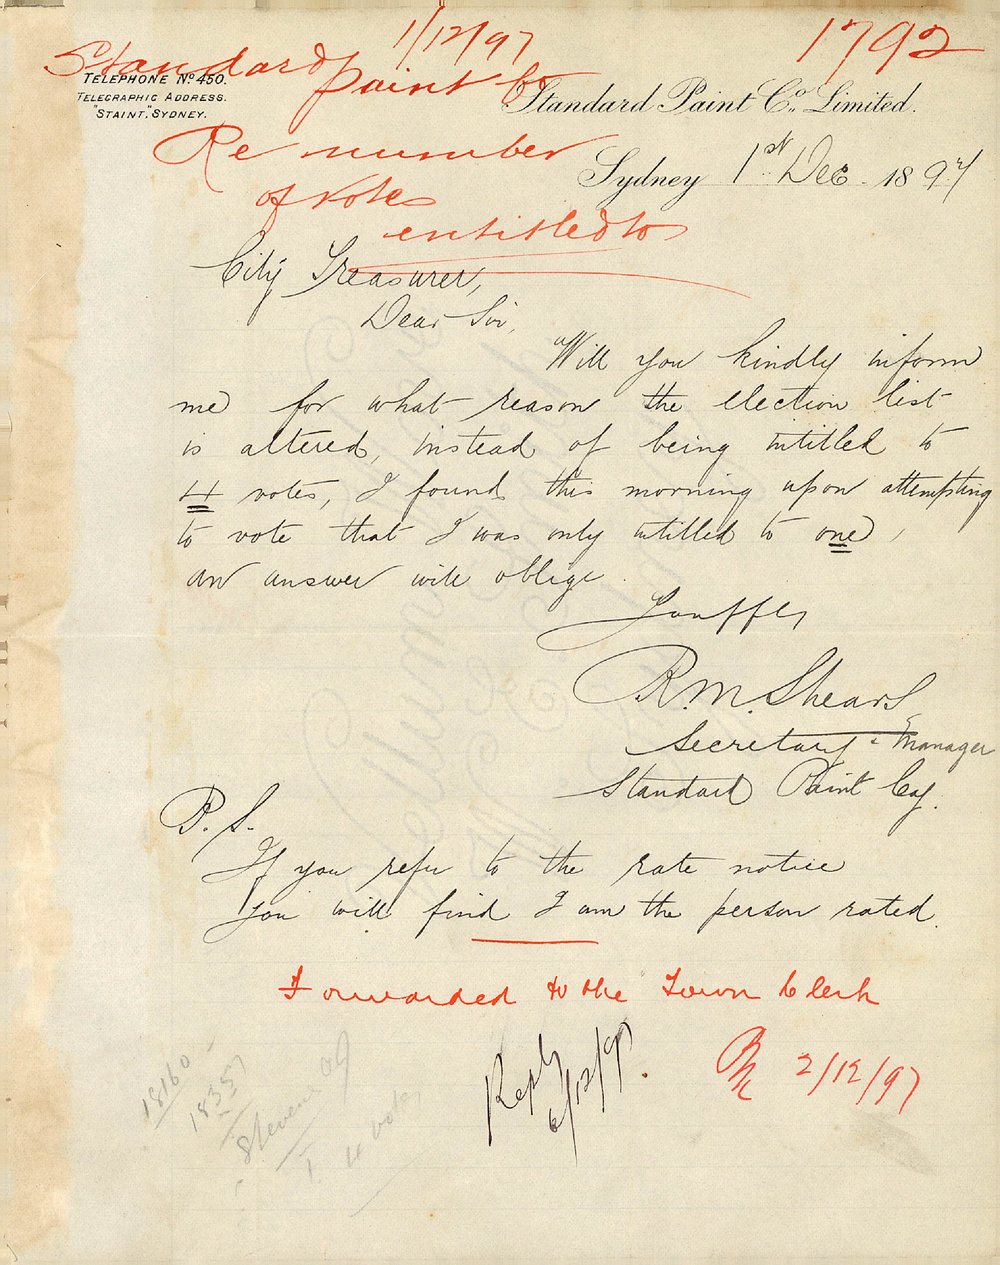 1/12/97
1792
Standard
paint Co
TELEPHONE Nº 450.
TELEGRAPHIC ADDRESS.
"STAINT," SYDNEY.
Standard Paint Co. Limited.
Re number
of votes
entitled to
Sydney 1st Dec 1897
City Treasurer,
Dear Sir,
Will you kindly inform
me for what reason the election list
is altered, instead of being intitled to
4 votes, I found this morning upon attempting
to vote that I was only intitled to one,
an answer will oblige.
Yours ffly
R. M. Shears
Secretary & Manager
Standard Paint Coy.
P. S.
If you refer to the rate notice
you will find I am the person rated.
Forwarded to the Town Clerk
2/12/97
Reply
6/12/97.
18160
1835
Steven
4 votes